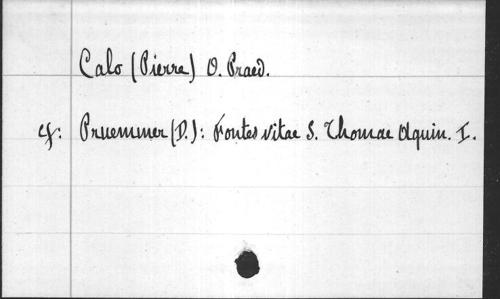 Calo (Pierre) O. Praed.
cf: Pruemmer (D.): Fontes vitae S. Thomae Aquin. I.